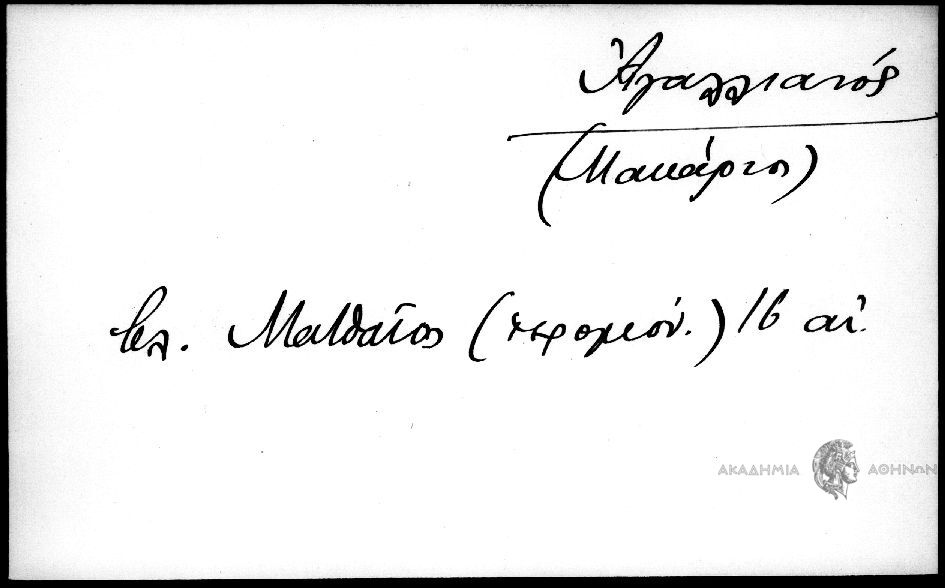 Ἀγαλλιανός
(Μακάριος)
βλ. Ματθαῖος (ἱερομον.) 16 αἰ.
ΑΚΑΔΗΜΙΑ ΑΘΗΝΩΝ